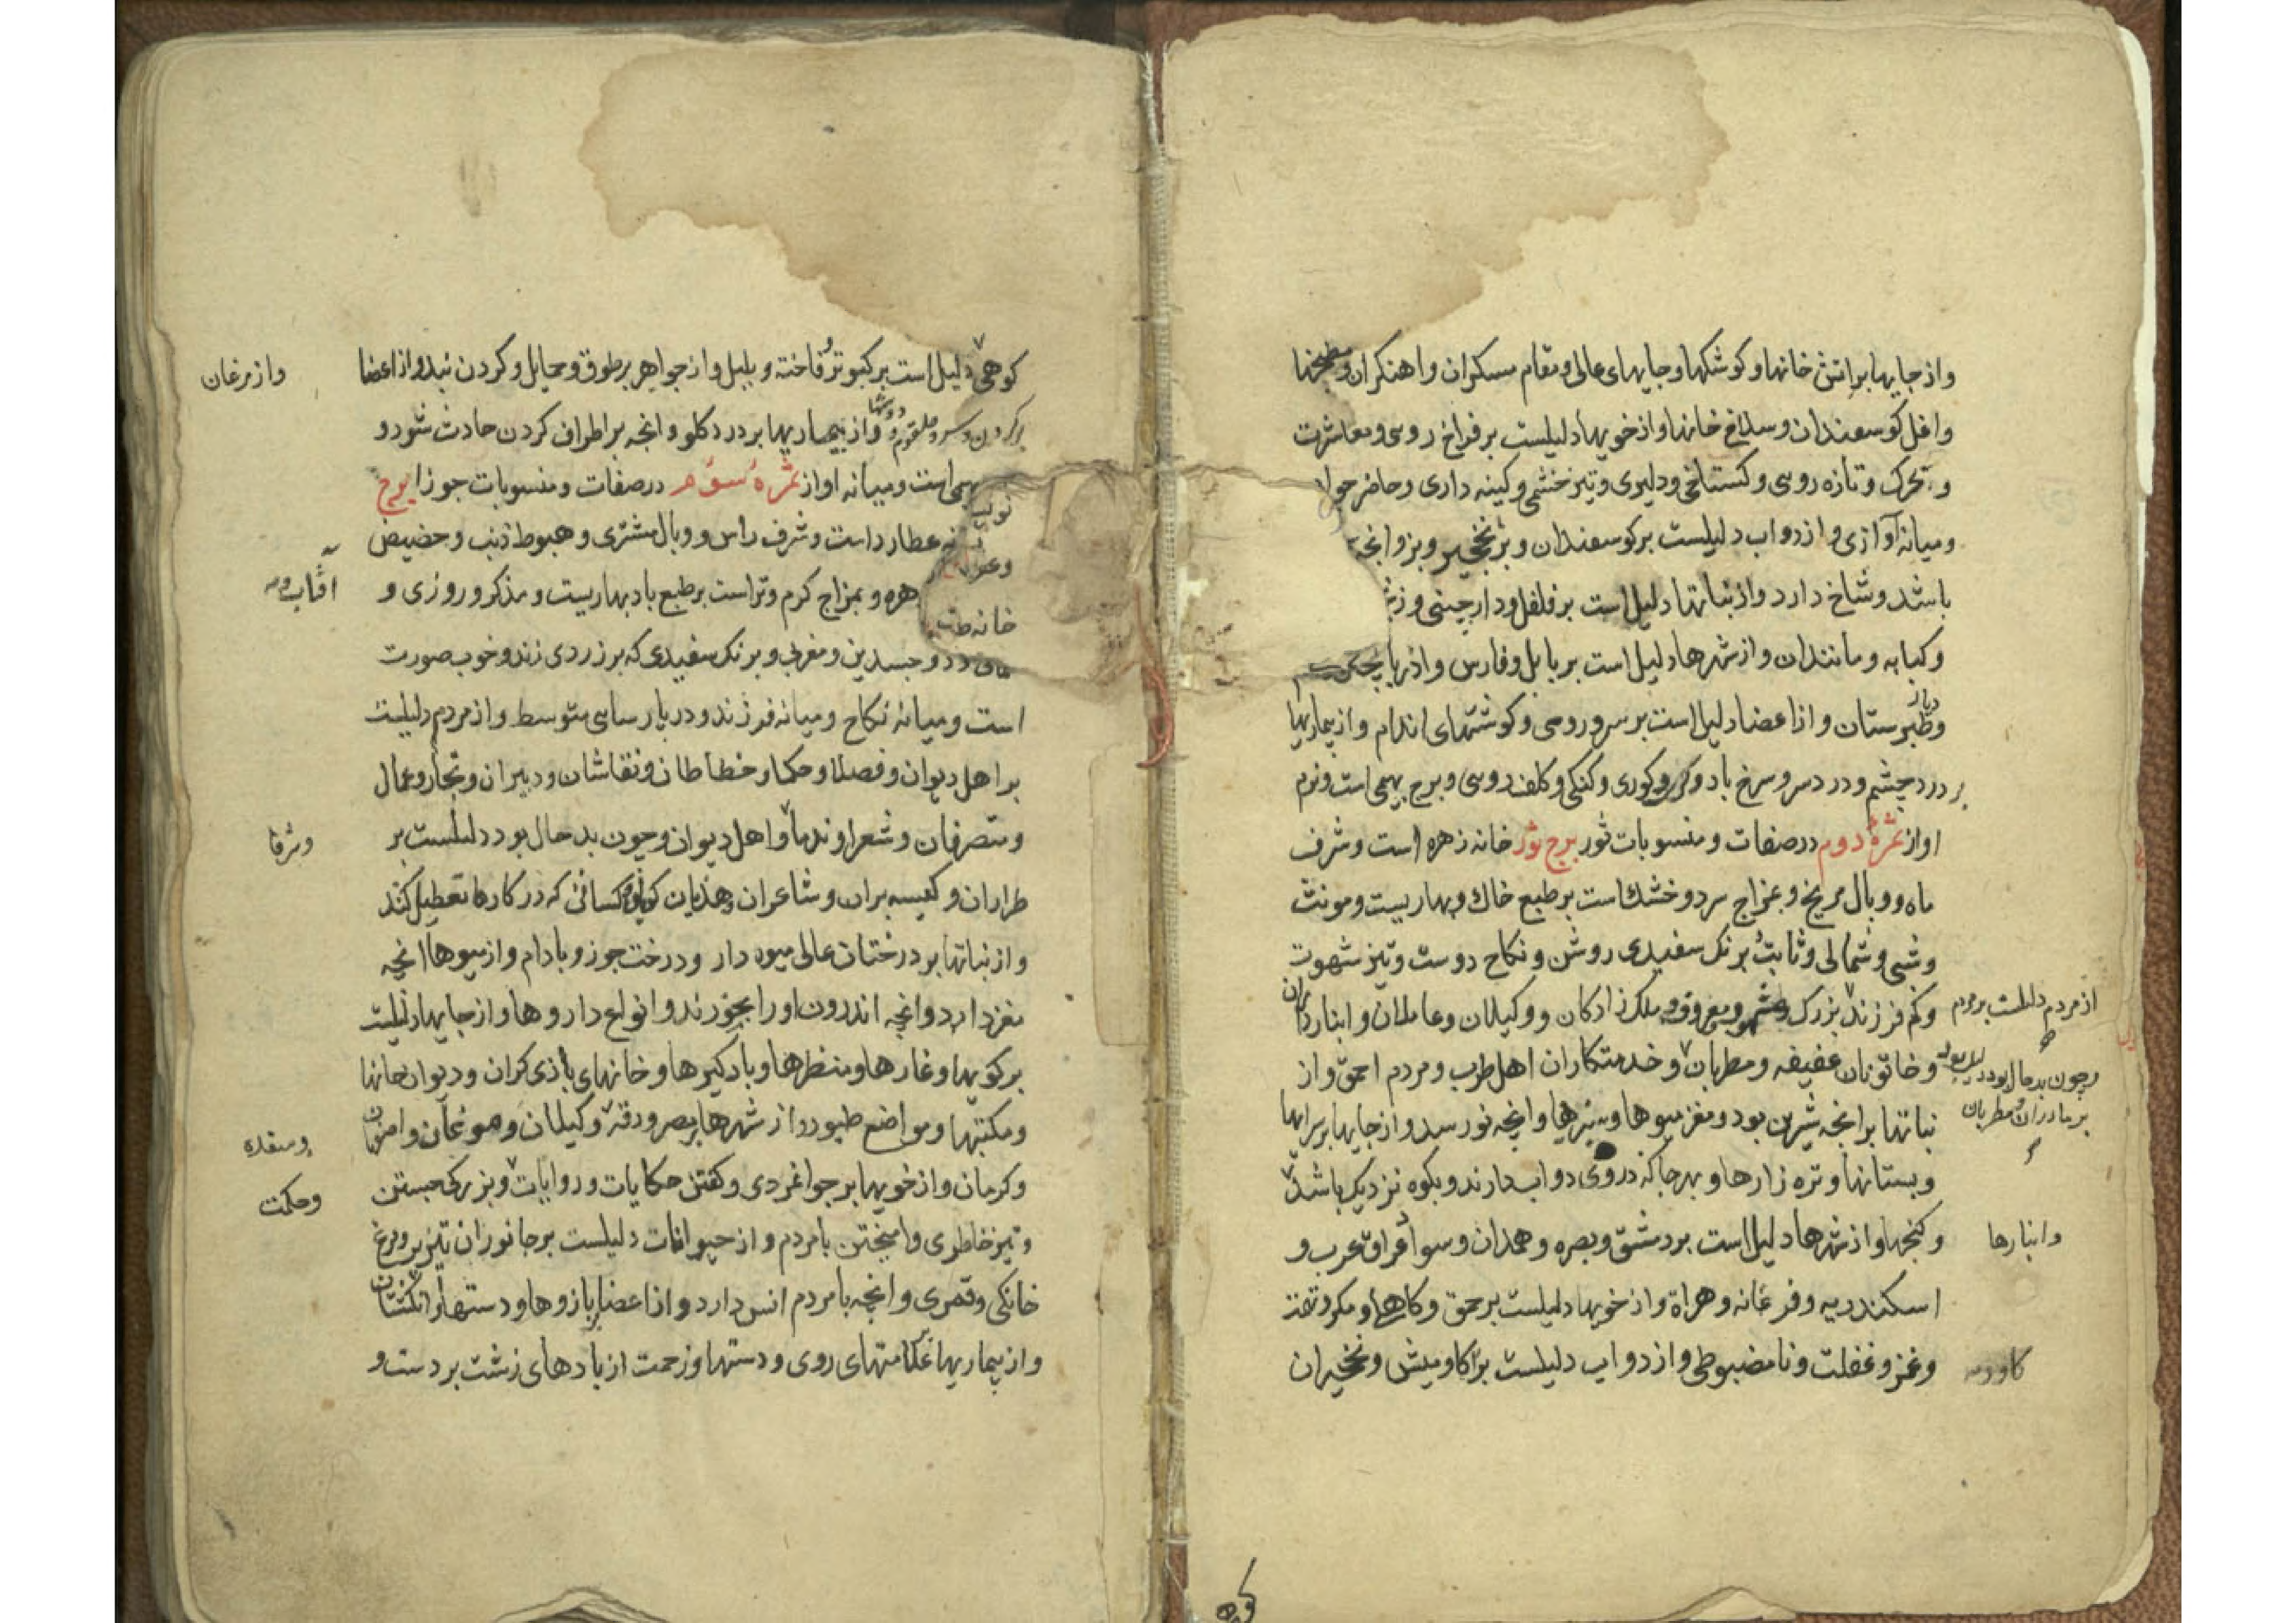 واز جایها بر اتش خانها و کوشکها و جایهای عالی و مقام مسکران واهنکران و مطبخها
واغل کوسفندان و سلاخ خانها واز خویها دلیلست بر فراخ روی و معاشرت
و تحرک و تازه روی و کستاخی و دلیری و تیز خشمی و کینه داری و حاضر جوا
و میانه آوازی و از دواب دلیلست بر کوسفندان و بر نخجیر و بز وانچه
باشد و شاخ دارد واز نباتها دلیل است بر فلفل و دارچینی و
و کبابه و مانند ان واز شهرها دلیل است بر بابل و فارس و اذربایجان
دیار
وطبرستان و از اعضا دلیل است بر سر و روی و کوشتهای اندام واز بیماریها
بر درد چشم و درد سر و سرخ باد و کری و کوری و کنکی و کلف روی و برج بهیمی است ونرم
اواز ثمرهٔ دوم در صفات و منسوبات ثور برج ثور خانه زهره است و شرف
ماه و وبال مریخ و بمزاج سرد و خشک است بر طبع خاک و بهاریست و مونث
و شبی و شمالی و ثابت برنک سفیدی روشن و نکاح دوست و تیز شهوت
وکم فرزند بزرک و معروف و ملک زادکان و وکیلان و عاملان و انبارداران
از مردم دلیلست بر مردم
و خاتونان عفیفه و مطربان و خدمتکاران اهل طرب و مردم احمق و از
و چون بد حال بود دلیل بود
بر مادران و مطربان
نباتها بر انچه شیرین بود و مغز میوها و سبزیها و انچه نو رسد واز جایها بر سرایها
و بستانها و تره زارها و بهر جا که در وی دواب دارند و بکوه نزدیک باشد
و کنجها واز شهرها دلیل است بر دمشق و بصره و همدان و سواد عراق عرب و
وانبارها
اسکندریه و فرغانه و هراة واز خویها دلیلست بر حمق و کاهلی و مکر و تهمت
و غمز و غفلت و نا مضبوطی واز دواب دلیلست بر کاو میش و نخجیران
کوهی
کوهی دلیل است بر کبوتر و فاخته و بلبل واز جواهر بر طوق و حمایل و کردن بند واز اعضا
واز مرغان
بر کردن و سر و حلقوم و دوشها واز بیماریها بر درد کلو وانچه بر اطراف کردن حادث شود و
بهیمی است و میانه اواز ثمرهٔ سوم در صفات و منسوبات جوزا برج
عطارد است و شرف راس و وبال مشتری و هبوط ذنب و حضیض
افتاب و
زهره و بمزاج کرم و تر است بر طبع باد بهاریست و مذکر و روزی و
خانه
ذو جسدین و مغربی و برنک سفیدی که بر زردی زند و خوب صورت
است و میانهٔ نکاح و میانه فرزند و در پارسایی متوسط و از مردم دلیلست
بر اهل دیوان و فضلا و حکما و خطاطان و نقاشان و دبیران و تجار و عمال
و متصرفان و شعرا و ندما و اهل دیوان و چون بد حال بود دلیلست بر
طراران و کیسه بران و شاعران هذیان کوی و کسانی که در کارها تعطیل کنند
واز نباتها بر درختان عالی میوه دار و درخت جوز و بادام واز میوها انچه
مغز دارد و انچه اندرون او را بخورند و انواع داروها واز جایها دلیلست
بر کوهها و غارها و منظرها و بادکیرها و خانهای بازی کران و دیوان خانها
و مکتبها و مواضع طیور و از شهرها بر مصر و رقه و کیلان و موغان و ارمن
و کرمان واز خویها بر جوانمردی و کفتن حکایات و روایات و بزرکی جستن
وحکمت
و تیز خاطری و امیختن با مردم و از حیوانات دلیلست بر جانوران تیز پر و مرغ
خانکی و قمری و انچه با مردم انس دارد واز اعضا بازوها و دستها و انکشتان
واز بیماریها علامتهای روی و دستها و زحمت از بادهای زشت بر دست و